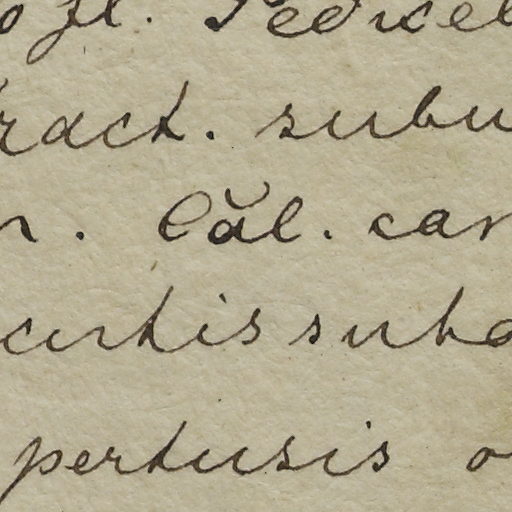 o fl. Pedicel
ract. subu
n. Căl. car
curtis subo
pertusis o